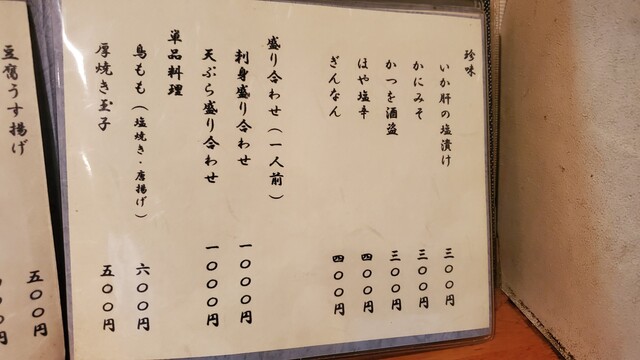 珍味
いか肝の塩漬け 三〇〇円
かにみそ 三〇〇円
かつを酒盗 三〇〇円
ほや塩辛 四〇〇円
ぎんなん 四〇〇円
盛り合わせ(一人前)
刺身盛り合わせ 一〇〇〇円
天ぷら盛り合わせ 一〇〇〇円
単品料理
鳥もも(塩焼き・唐揚げ) 六〇〇円
厚焼き玉子 五〇〇円
豆腐うす揚げ 五〇〇円
〇〇円